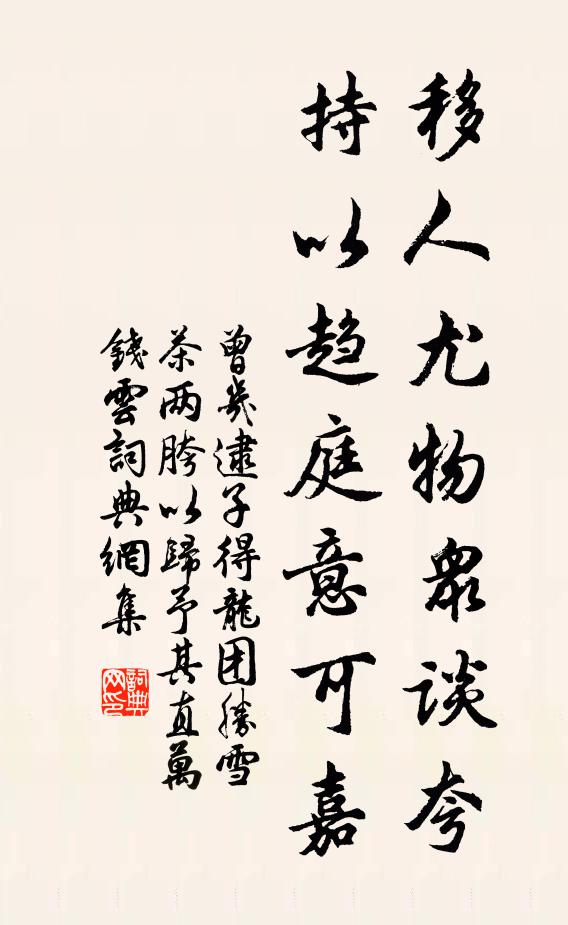 移人尤物眾談夸
持以趨庭意可嘉
曾幾逮子得龍團勝雪
茶两胯以歸予其直萬
錢雲詞典網集
詞典网印